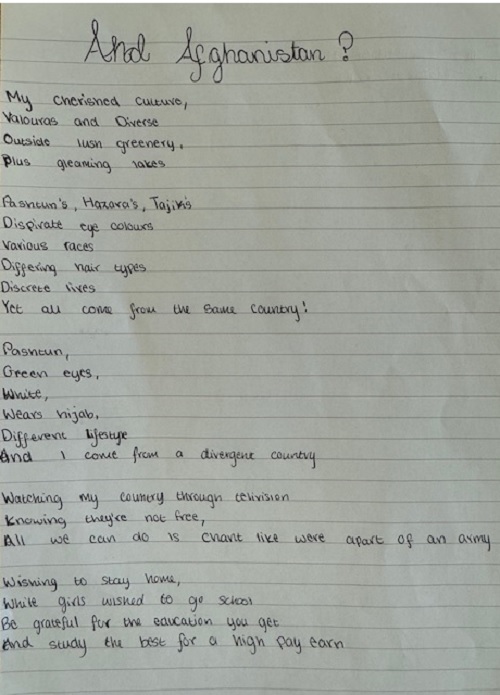 And Afghanistan?
My cherished culture,
Valouras and Diverse
Outside lush greenery,
Plus gleaming lakes
Pashtun's, Hazara's, Tajik's
Dispirate eye colours
Various races
Differing hair types
Discrete lives
Yet all come from the same country!
Pashtun,
Green eyes,
White,
Wears hijab,
Different lifestyle
And I come from a divergent country
Watching my country through television
Knowing they're not free,
All we can do is chant like were apart of an army
Wishing to stay home,
While girls wished to go school
Be grateful for the education you get
And study the best for a high pay earn